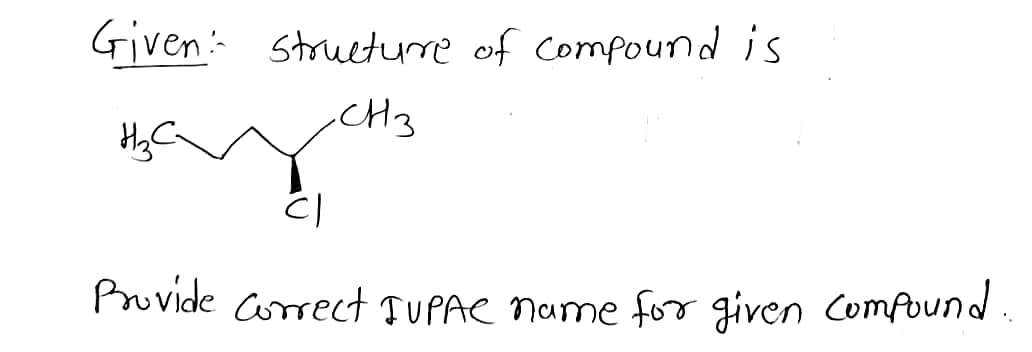 Given:- structure of compound is
CH3
H3C
Cl
Provide correct IUPAC name for given compound.